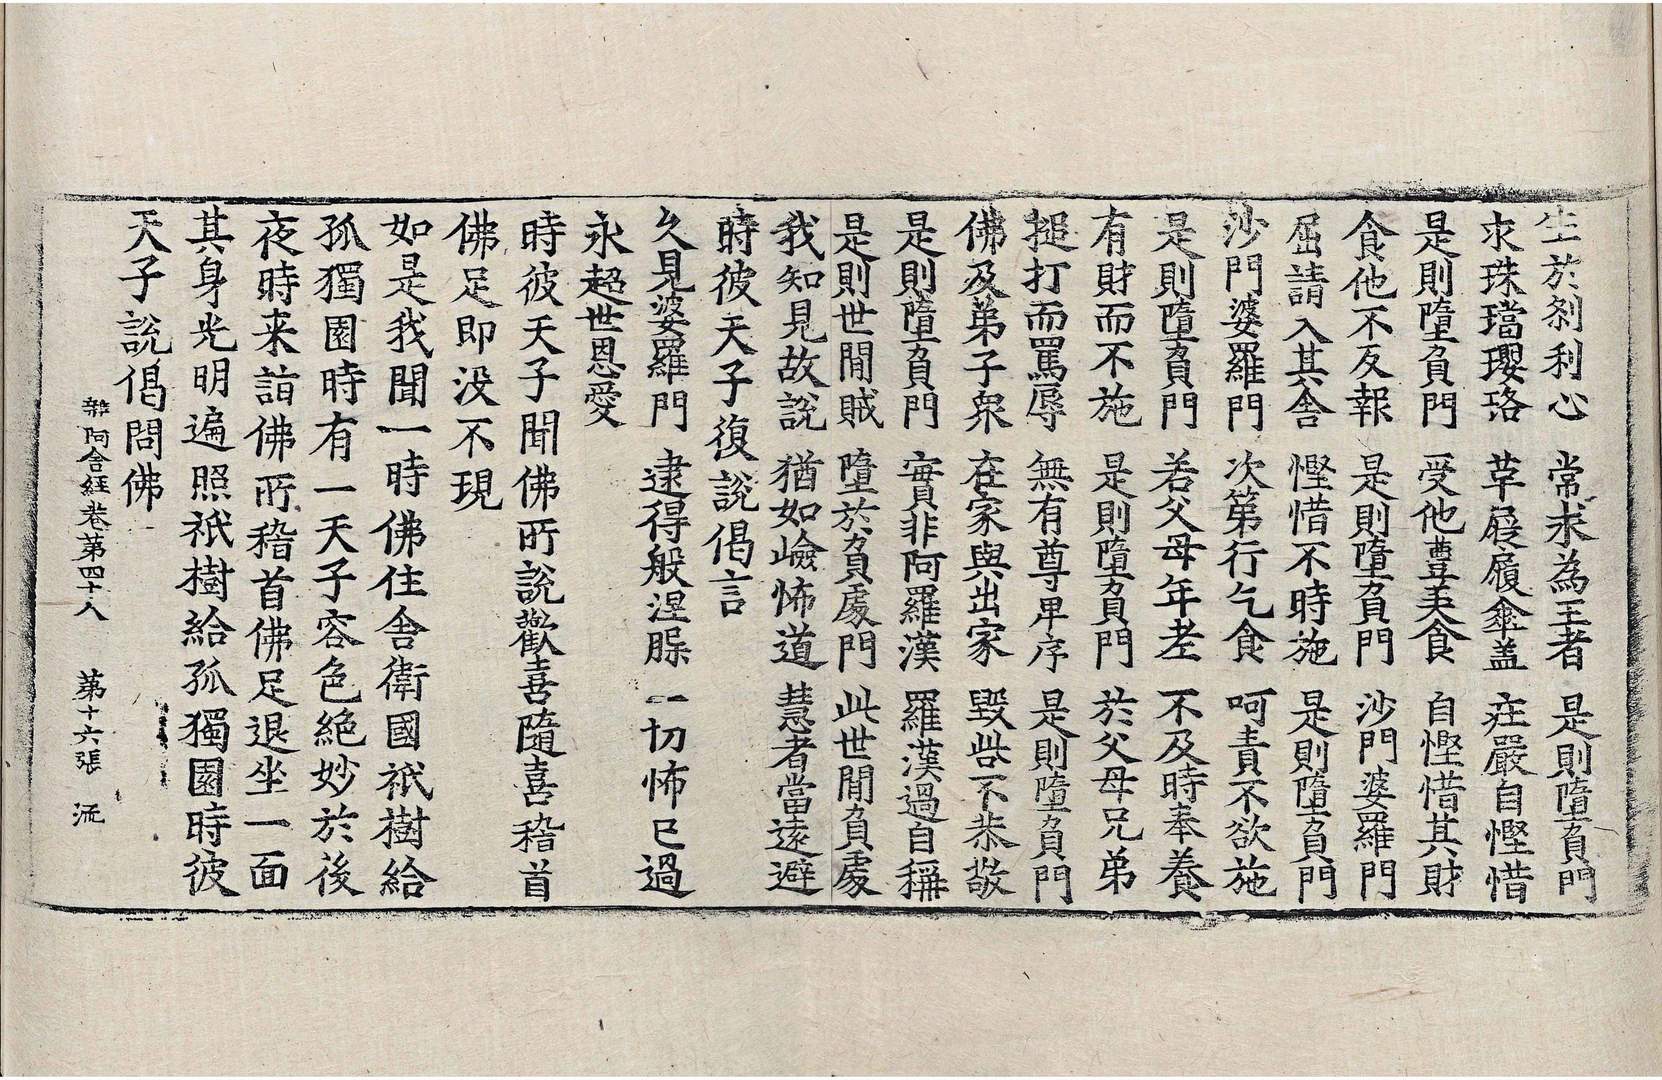 生於刹利心　常求為王者　是則墮負門
求珠璫瓔珞　草屐履傘盖　莊嚴自慳惜
是則墮負門　受他豊美食　自慳惜其財
食他不反報　是則墮負門　沙門婆羅門
屈請入其舍　慳惜不時施　是則墮負門
沙門婆羅門　次第行乞食　呵責不欲施
是則墮負門　若父母年老　不及時奉養
有財而不施　是則墮負門　於父母兄弟
搥打而罵辱　無有尊卑序　是則墮負門
佛及弟子衆　在家與出家　毀呰不恭敬
是則墮負門　實非阿羅漢　羅漢過自稱
是則世間賊　墮於負處門　此世間負處
我知見故說　猶如嶮怖道　慧者當遠避
時彼天子復說偈言
久見婆羅門　逮得般涅槃　一切怖已過
永超世恩愛
時彼天子聞佛所說歡喜隨喜稽首
佛足即没不現
如是我聞一時佛住舍衛國祇樹給
孤獨園時有一天子容色絶妙於後
夜時来詣佛所稽首佛足退坐一面
其身光明遍照祇樹給孤獨園時彼
天子說偈問佛
雜阿含經卷第四十八　第十六張　流